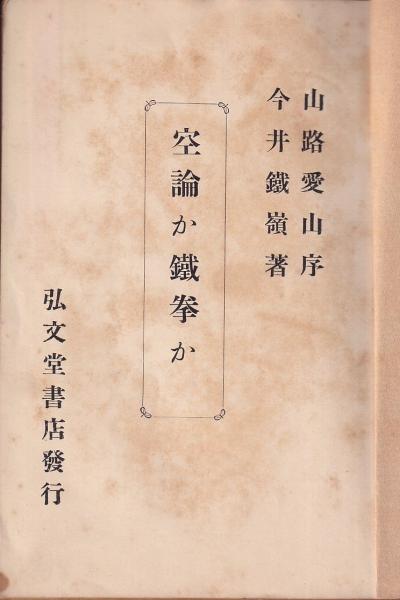 山路愛山序
今井鐵嶺著
空論か鐵拳か
弘文堂書店發行